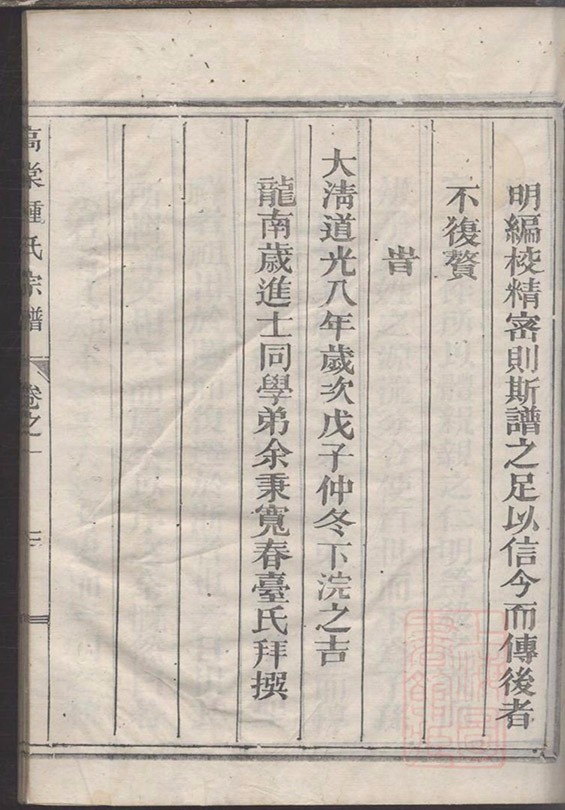 明編校精密則斯譜之足以信今而傳後者
不復贅
旹
大清道光八年歲次戊子仲冬下浣之吉
龍南歲進士同學弟余秉寬春臺氏拜撰
高棠鍾氏宗譜 卷之一 二